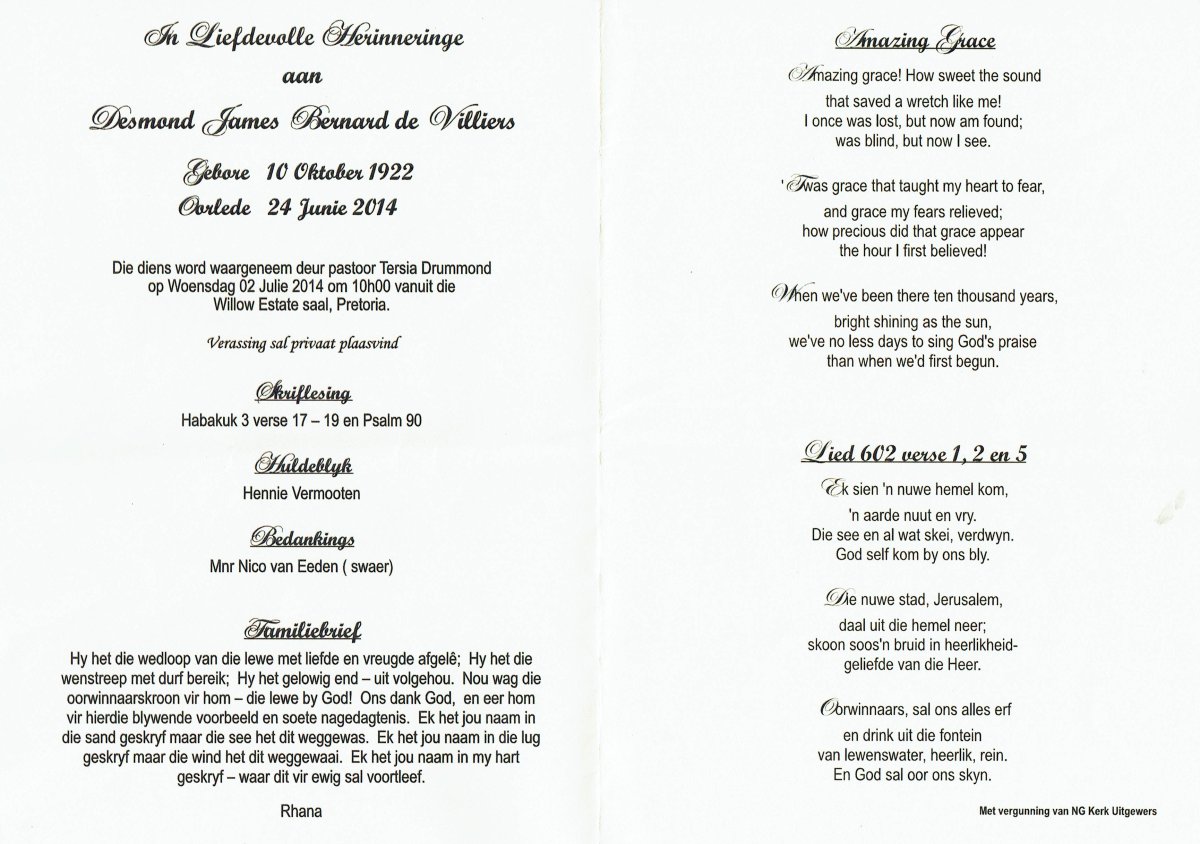 In Liefdevolle Herinneringe
aan
Desmond James Bernard de Villiers
Gebore 10 Oktober 1922
Oorlede 24 Junie 2014
Die diens word waargeneem deur pastoor Tersia Drummond
op Woensdag 02 Julie 2014 om 10h00 vanuit die
Willow Estate saal, Pretoria.
Verassing sal privaat plaasvind
Skriflesing
Habakuk 3 verse 17 – 19 en Psalm 90
Huldeblyk
Hennie Vermooten
Bedankings
Mnr Nico van Eeden ( swaer)
Familiebrief
Hy het die wedloop van die lewe met liefde en vreugde afgelê; Hy het die
wenstreep met durf bereik; Hy het gelowig end – uit volgehou. Nou wag die
oorwinnaarskroon vir hom – die lewe by God! Ons dank God, en eer hom
vir hierdie blywende voorbeeld en soete nagedagtenis. Ek het jou naam in
die sand geskryf maar die see het dit weggewas. Ek het jou naam in die lug
geskryf maar die wind het dit weggewaai. Ek het jou naam in my hart
geskryf – waar dit vir ewig sal voortleef.
Rhana
Amazing Grace
Amazing grace! How sweet the sound
that saved a wretch like me!
I once was lost, but now am found;
was blind, but now I see.
'Twas grace that taught my heart to fear,
and grace my fears relieved;
how precious did that grace appear
the hour I first believed!
When we've been there ten thousand years,
bright shining as the sun,
we've no less days to sing God's praise
than when we'd first begun.
Lied 602 verse 1, 2 en 5
Ek sien 'n nuwe hemel kom,
'n aarde nuut en vry.
Die see en al wat skei, verdwyn.
God self kom by ons bly.
Die nuwe stad, Jerusalem,
daal uit die hemel neer;
skoon soos'n bruid in heerlikheid-
geliefde van die Heer.
Oorwinnaars, sal ons alles erf
en drink uit die fontein
van lewenswater, heerlik, rein.
En God sal oor ons skyn.
Met vergunning van NG Kerk Uitgewers